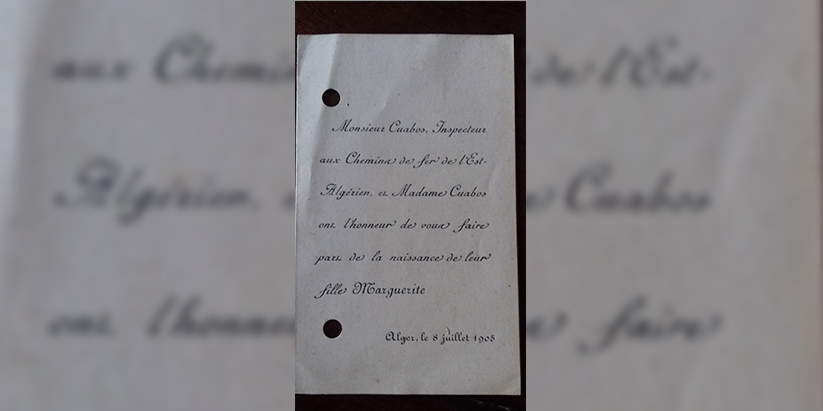 Monsieur Cuabos, Inspecteur
aux Chemins de fer de l'Est-
Algérien, et Madame Cuabos
ont l'honneur de vous faire
part de la naissance de leur
fille Marguerite
Alger, le 8 juillet 1905